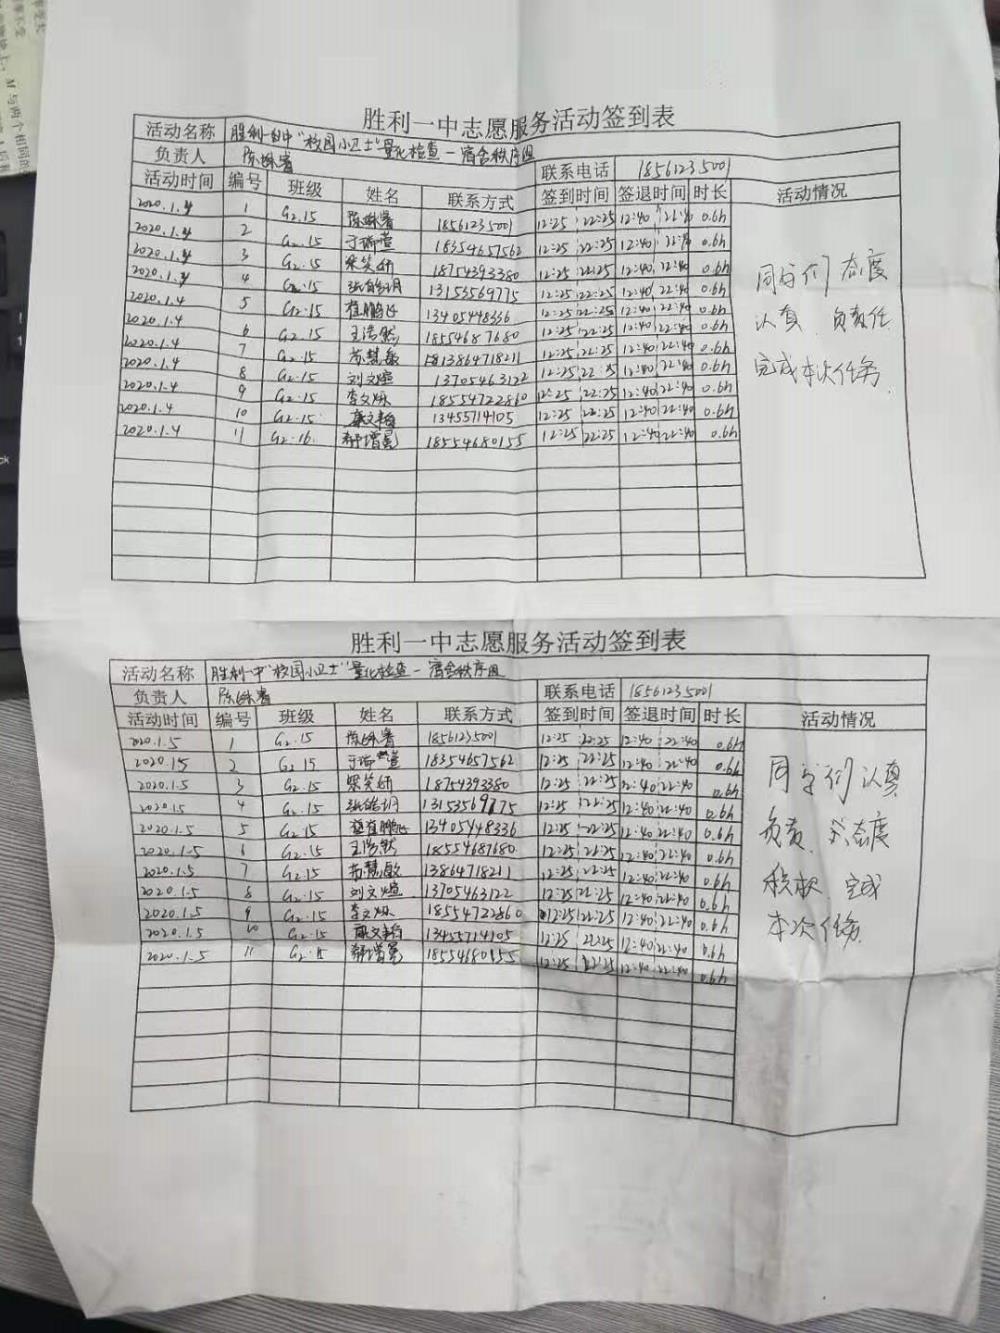 胜利一中志愿服务活动签到表
活动名称 胜利一中"校园小卫士"量化检查-宿舍秩序组
负责人 联系电话 18561235001
活动时间 编号 班级 姓名 联系方式 签到时间 签退时间 时长 活动情况
2020.1.4 1 G2.15 18561235001 12:25 22:25 12:40 0.6h
2020.1.4 2 G2.15 于瑞萱 18354657562 12:25 22:25 12:40 0.6h
2020.1.4 3 G2.15 柴笑研 18754393380 12:25 22:25 12:40 0.6h
2020.1.4 4 G2.15 张皓玥 13153569775 12:25 22:25 12:40 22:40 0.6h
2020.1.4 5 G2.15 崔鹏飞 13405448336 12:25 22:25 12:40 22:40 0.6h
2020.1.4 6 G2.15 王浩然 18554687680 12:25 22:25 12:40 22:40 0.6h
2020.1.4 7 G2.15 苏慧敏 13864718211 12:25 22:25 12:40 22:40 0.6h
2020.1.4 8 G2.15 刘文煊 13705463122 12:25 22:25 12:40 22:40 0.6h
2020.1.4 9 G2.15 李文焕 18554722860 12:25 22:25 12:40 22:40 0.6h
2020.1.4 10 G2.15 13455714105 12:25 22:25 12:40 22:40 0.6h
2020.1.4 11 G2.16 18554680155 12:25 22:25 12:40 22:40 0.6h
同学们态度
认真 负责任
完成本次任务.
胜利一中志愿服务活动签到表
活动名称 胜利一中"校园小卫士"量化检查-宿舍秩序组
负责人 联系电话 18561235001
活动时间 编号 班级 姓名 联系方式 签到时间 签退时间 时长 活动情况
2020.1.5 1 G2.15 18561235001 12:25 22:25 12:40 22:40 0.6h
2020.15 2 G2.15 于瑞萱 18354657562 12:25 22:25 12:40 22:40 0.6h
2020.1.5 3 G2.15 柴笑研 18754393380 12:25 22:25 12:40 22:40 0.6h
2020.15 4 G2.15 张皓玥 13153569775 12:25 22:25 12:40 22:40 0.6h
2020.1.5 5 G2.15 崔鹏飞 13405448336 12:25 22:25 12:40 22:40 0.6h
2020.1.5 6 G2.15 王浩然 18554687680 12:25 22:25 12:40 22:40 0.6h
2020.1.5 7 G2.15 苏慧敏 13864718211 12:25 22:25 12:40 22:40 0.6h
2020.1.5 8 G2.15 刘文煊 13705463122 12:25 22:25 12:40 22:40 0.6h
2020.1.5 9 G2.15 李文焕 18554722860 12:25 22:25 12:40 22:40 0.6h
2020.1.5 10 G2.15 13455714105 12:25 22:25 12:40 22:40 0.6h
2020.1.5 11 18554680155 12:25 22:25 12:40 22:40 0.6h
同学们认真
负责 态度
积极 完成
本次任务